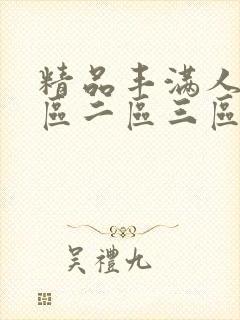 精品丰滿人
區二區三區
吴禮九